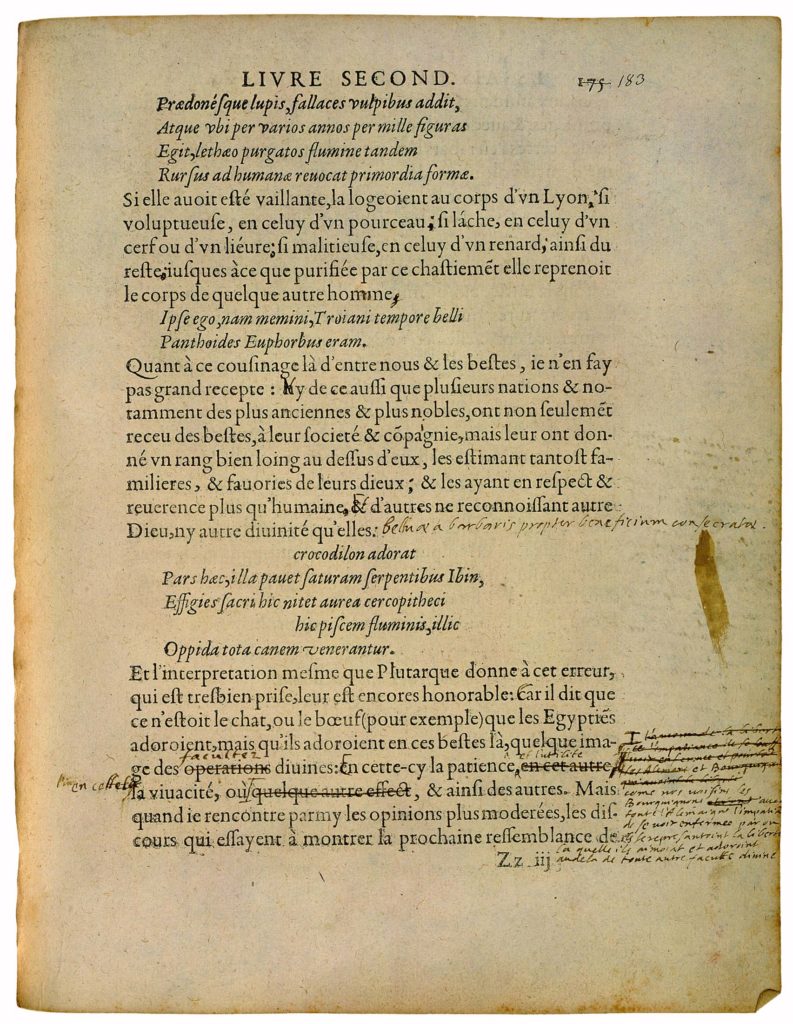 LIVRE SECOND. 175 183
Prædonésque lupis, fallaces vulpibus addit,
Atque vbi per varios annos per mille figuras
Egit, lethæo purgatos flumine tandem
Rursus ad humanæ reuocat primordia formæ.
Si elle auoit esté vaillante, la logeoient au corps d'vn Lyon, si
voluptueuse, en celuy d'vn pourceau; si láche, en celuy d'vn
cerf ou d'vn liéure; si malitieuse, en celuy d'vn renard; ainsi du
reste; iusques àce que purifiée par ce chastiemēt elle reprenoit
le corps de quelque autre homme,
Ipse ego, nam memini, Troiani tempore belli
Panthoides Euphorbus eram.
Quant à ce cousinage là d'entre nous & les bestes, ie n'en fay
pas grand recepte: Ny de ce aussi que plusieurs nations & no-
tamment des plus anciennes & plus nobles, ont non seulemēt
receu des bestes, à leur societé & cōpagnie, mais leur ont don-
né vn rang bien loing au dessus d'eux, les estimant tantost fa-
milieres, & fauories de leurs dieux; & les ayant en respect &
reuerence plus qu'humaine, & d'autres ne reconnoissant autre
Dieu, ny autre diuinité qu'elles: beluæ a barbaris propter beneficium consecratæ.
crocodilon adorat
Pars hæc, illa pauet saturam serpentibus Ibin,
Effigies sacri hic nitet aurea cercopitheci
hic piscem fluminis, illic
Oppida tota canem venerantur.
Et l'interpretation mesme que Plutarque donne à cet erreur,
qui est tresbien prise, leur est encores honorable: Car il dit que
ce n'estoit le chat, ou le bœuf (pour exemple) que les Egyptiēs
adoroient, mais qu'ils adoroient en ces bestes là, quelque ima-
facultez et l'utilité
ge des operations diuines: En cette-cy la patience, en cet autre
en cette la
la viuacité, ou quelque autre effect, & ainsi des autres. Mais
quand ie rencontre parmy les opinions plus moderées, les dis-
cours qui essayent à montrer la prochaine ressemblance de
Zz iij
come nos voisins les
Bourguignons
tout l'Allemaigne l'impatiance
de se voir enfermes par ou
ils se represantoint la liberte
la quelle ils aimoint et adoroint
au dela de toute autre faculte divine